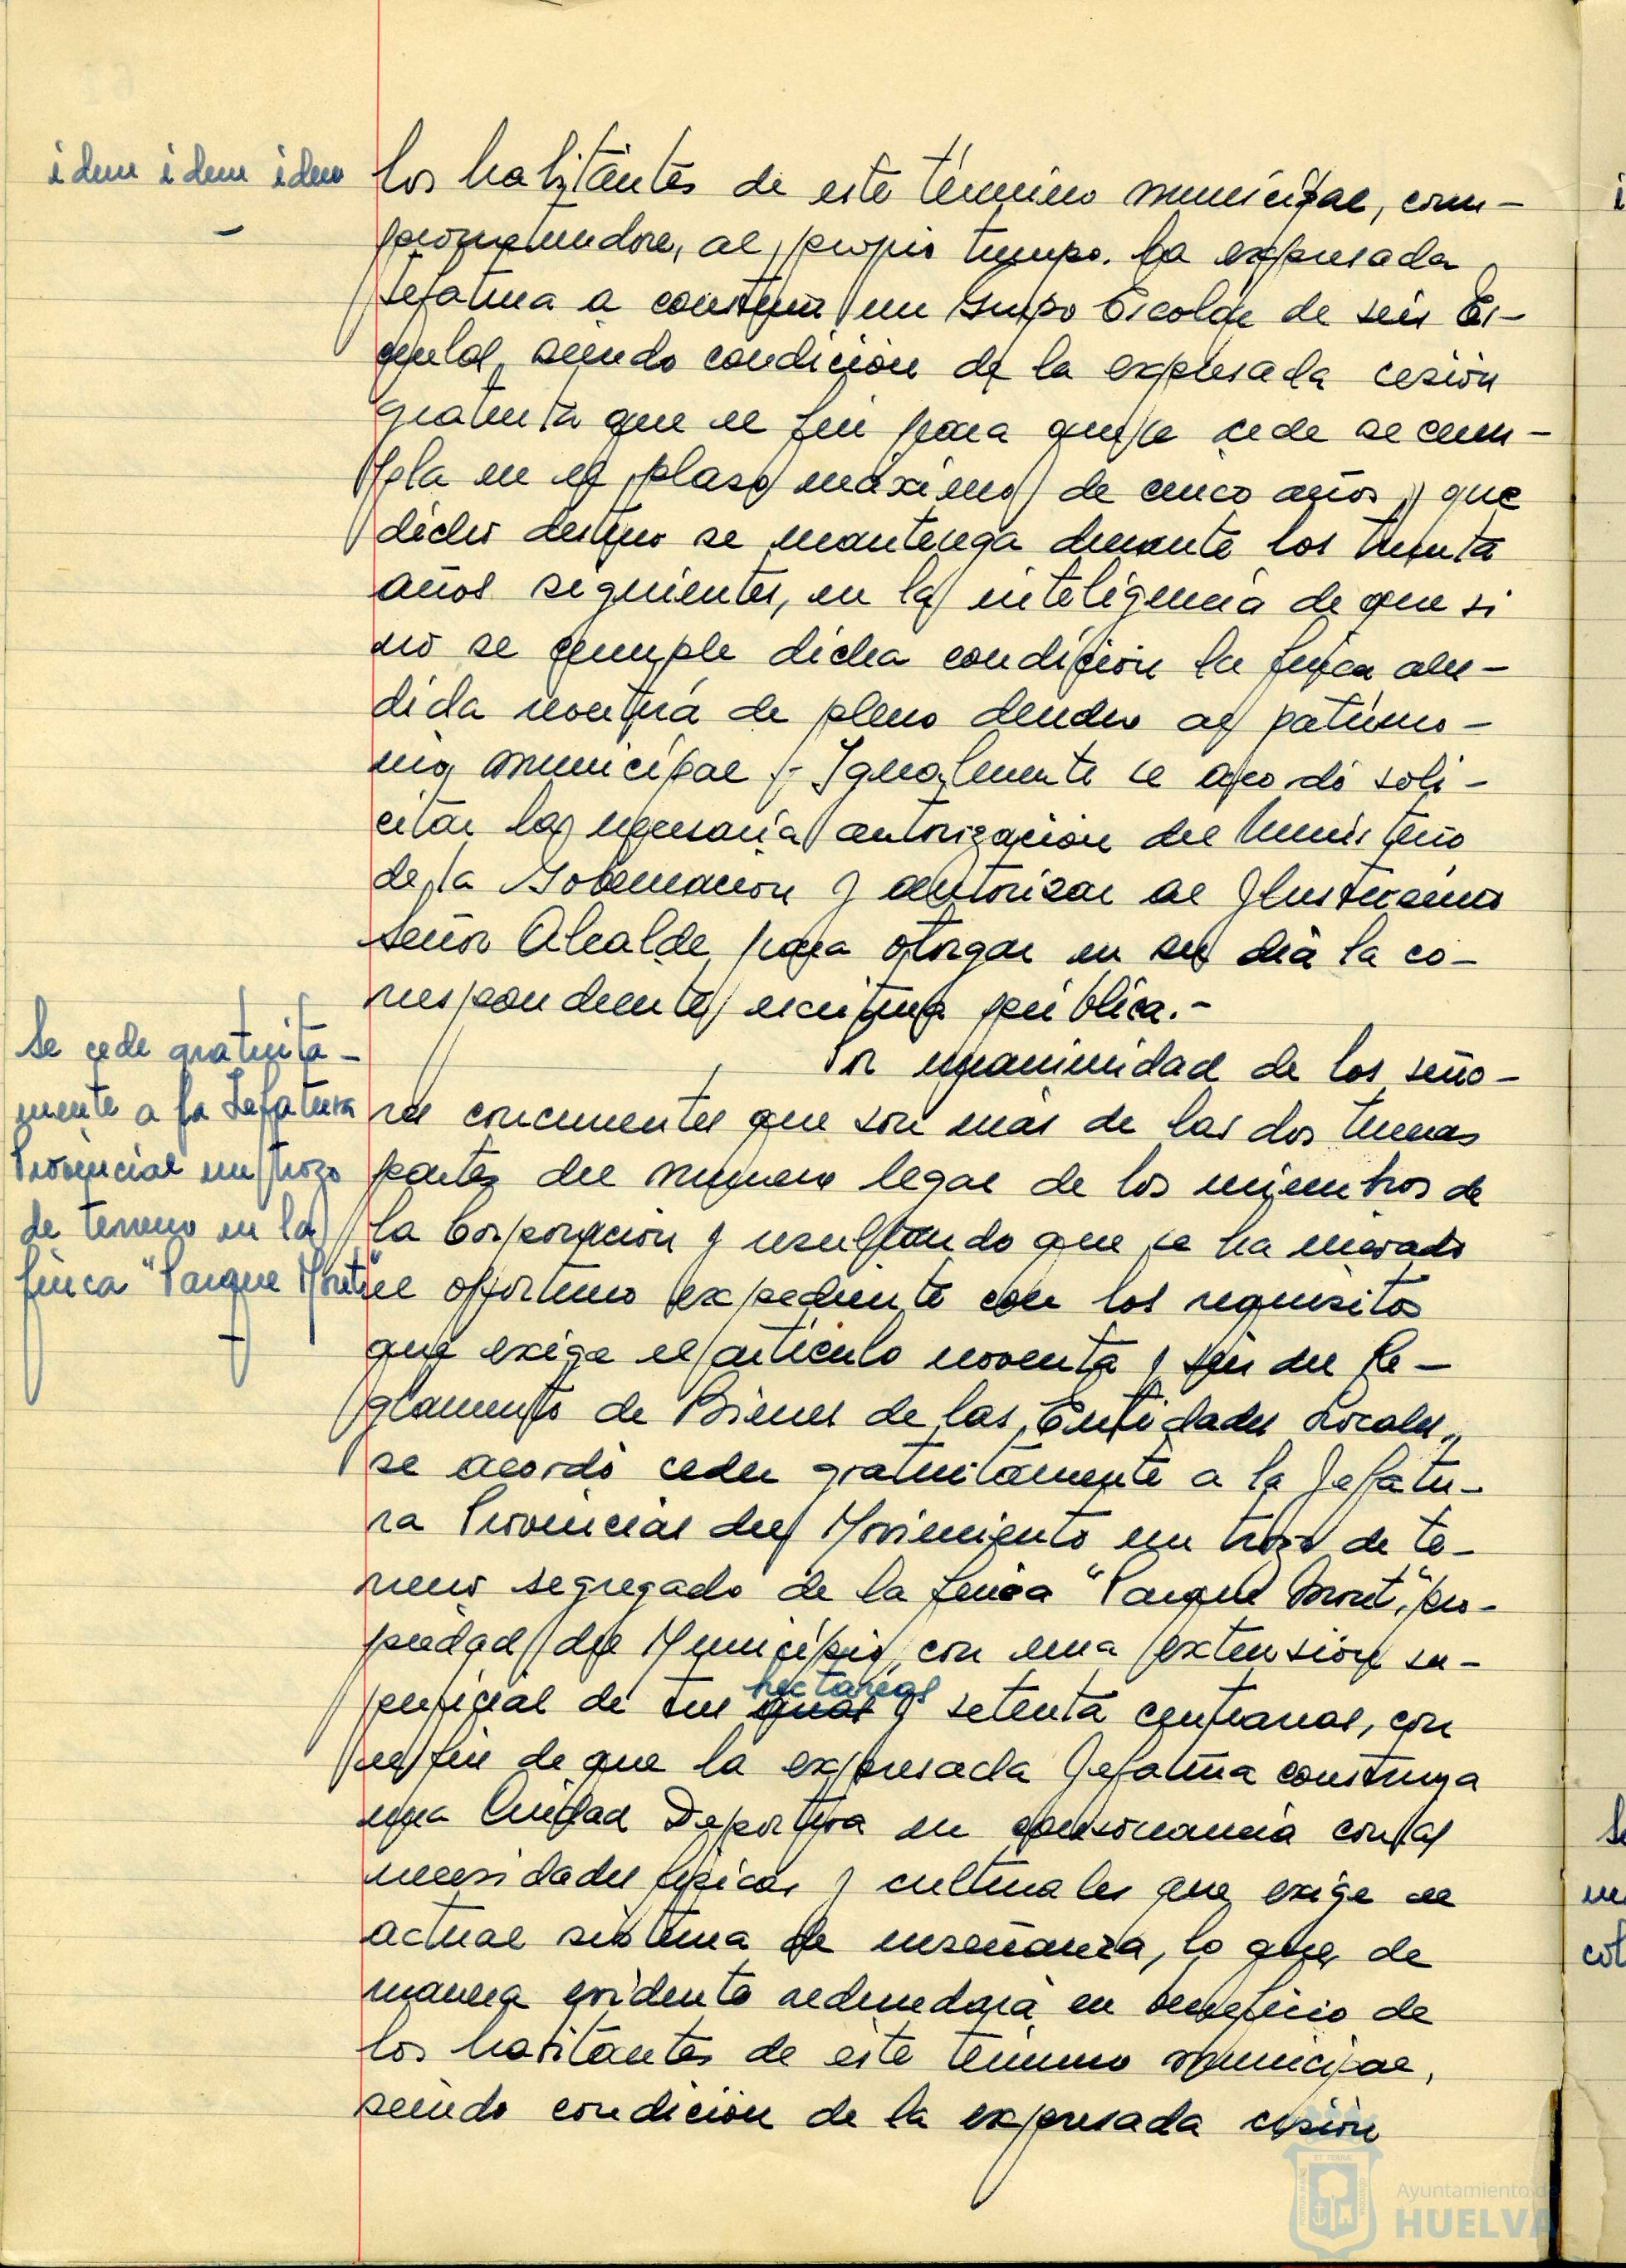 idem idem idem
los habitantes de este término municipal, com-
prometiendose, al propio tiempo. la expresada
Jefatura a construir un Grupo Escolar de seis Es-
cuelas, siendo condición de la expresada cesión
gratuita que el fin para que se cede se cum-
pla en el plazo máximo de cinco años y que
dicho destino se mantenga durante los treinta
años siguientes, en la inteligencia de que si
no se cumple dicha condición la finca alu-
dida revertirá de pleno derecho al patrimo-
nio municipal.- Igualmente se acordó soli-
citar la necesaria autorización del Ministerio
de la Gobernación y autorizar al Ilustrísimo
Señor Alcalde para otorgar en su día la co-
rrespondiente escritura pública.-
Se cede gratuita-
mente a la Jefatura
Provincial un trozo
de terreno en la
finca "Parque Moret"
Por unanimidad de los seño-
res concurrentes que son más de las dos terceras
partes del número legal de los miembros de
la Corporación y resultando que se ha incoado
el oportuno expediente con los requisitos
que exige el artículo noventa y seis del Re-
glamento de Bienes de las Entidades Locales,
se acordó ceder gratuitamente a la Jefatu-
ra Provincial del Movimiento un trozo de te-
rreno segregado de la finca "Parque Moret", pro-
piedad del Municipio, con una extensión su-
perficial de tres hectáreas y setenta centiareas, con
el fin de que la expresada Jefatura construya
una Ciudad Deportiva en consonancia con las
necesidades físicas y culturales que exige el
actual sistema de enseñanza, lo que de
manera evidente redundará en beneficio de
los habitantes de este término municipal,
siendo condición de la expresada cesión
Ayuntamiento de
HUELVA